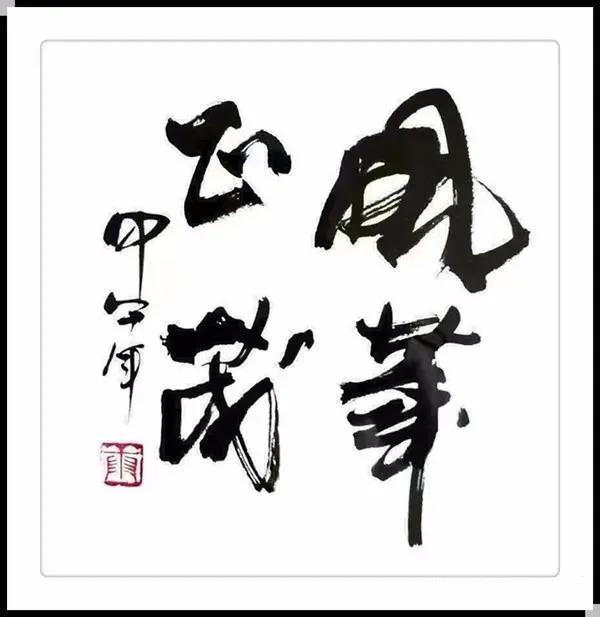 風華
正茂
甲午年